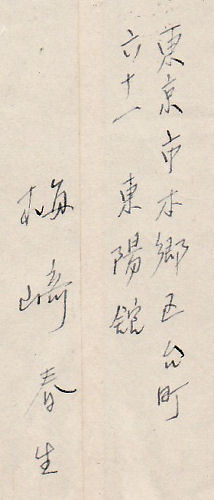 東京市本郷区台町
六十一 東陽館
梅崎春生